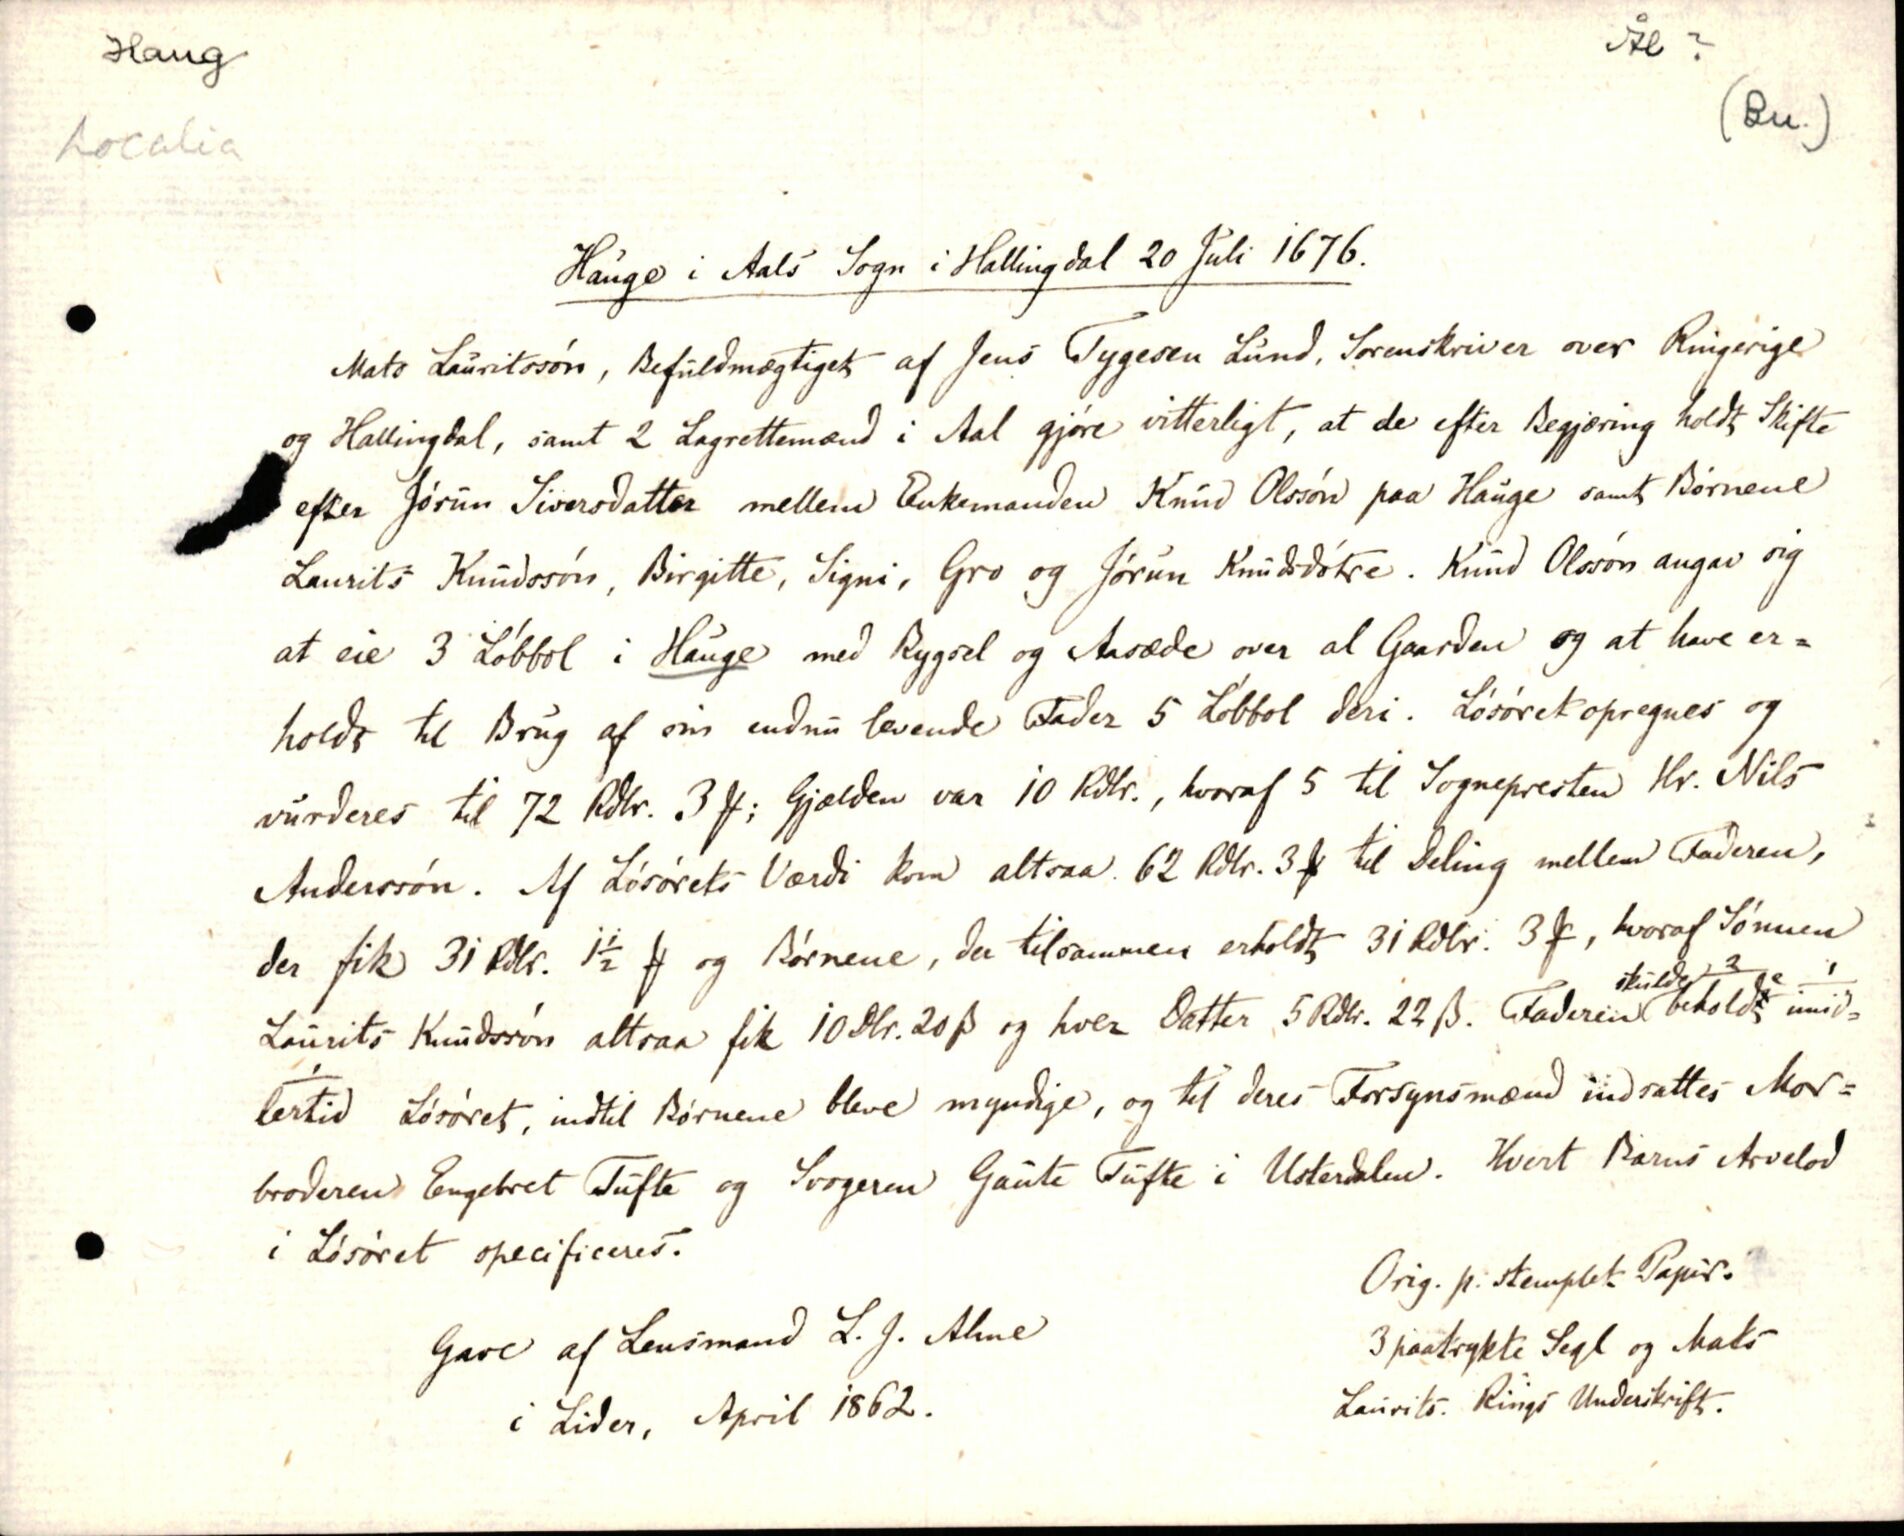 Haug
Ål ?
(Bu.)
Localia
Hauge i Aals Sogn i Hallingdal 20 Juli 1676.
Mats Lauritssón, Befuldmægtiget af Jens Tygesen Lund, Sorenskriver over Ringerige
og Hallingdal, samt 2 Lagrettemænd i Aal gjóre vitterligt, at de efter Begjæring holdt Skifte
efter Jórun Siversdatter mellem Enkemanden Knud Olssón paa Hauge samt Bórnene
Laurits Knudssón, Birgitte, Signi, Gro og Jórun Knudsdótre. Knud Olssón angav sig
at eie 3 Lóbbol i Hauge med Bygsel og Aasæde over al Gaarden og at have er=
holdt til Brug af sin endnu levende Fader 5 Lóbbol deri. Lósóret opregnes og
vurderes til 72 Rdlr. 3 ℔; Gjælden var 10 Rdlr., hvoraf 5 til Sognepresten Hr. Nils
Anderssón. Af Lósórets Værdi kom altsaa 62 Rdlr. 3 ℔ til Deling mellem Faderen,
der fik 31 Rdlr. 1½ ℔ og Bórnene, der tilsammen erholdt 31 Rdlr. 3 ℔, hvoraf Sónnen
Laurits Knudssón altsaa fik 10 Dlr. 20 ß og hver Datter 5 Rdlr. 22 ß. Faderen skulde beholde imid=
lertid Lósóret, indtil Bórnene bleve myndige, og til deres Forsynsmænd indsattes Mor=
broderen Engebret Tufte og Svogeren Gaute Tufte i Usterdalen. Hvert Barns Arvelod
i Lósóret specificeres.
Orig. p. stemplet Papir.
3 paatrykte Segl og Mats
Laurits. Rings Underskrift.
Gave af Lensmand L. J. Alme
i Lider, April 1862.